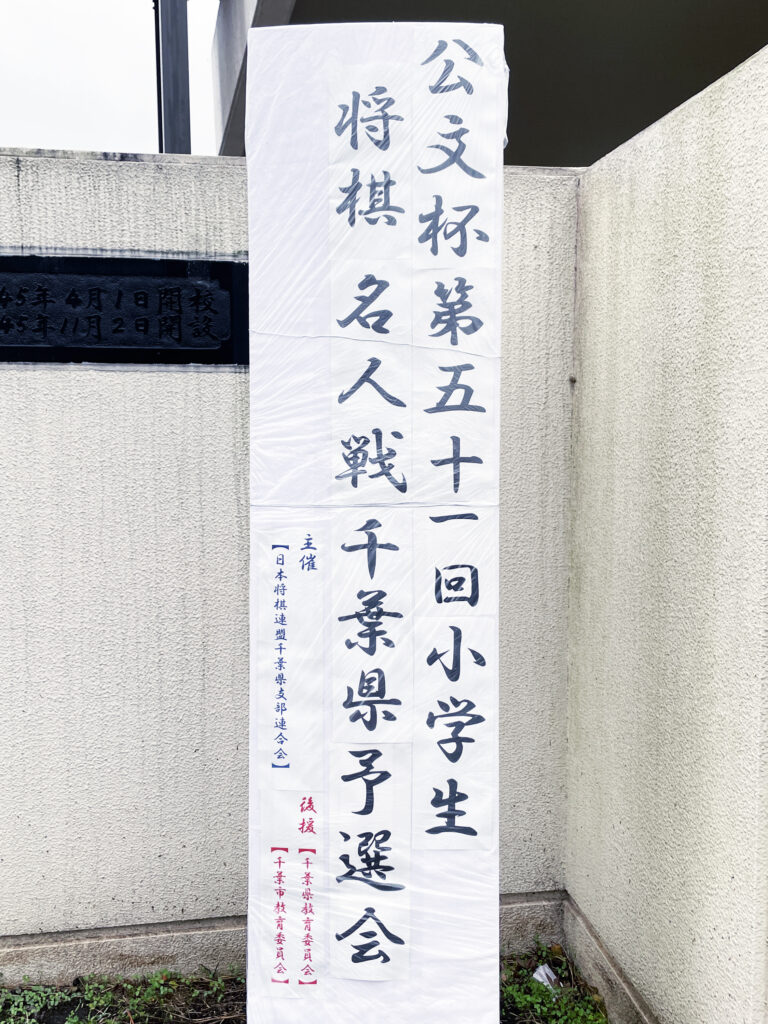 公文杯第五十一回小学生
将棋名人戦千葉県予選会
主催
【日本将棋連盟千葉県支部連合会】
後援
【千葉県教育委員会】
【千葉市教育委員会】
45年4月1日開校
45年11月2日開設